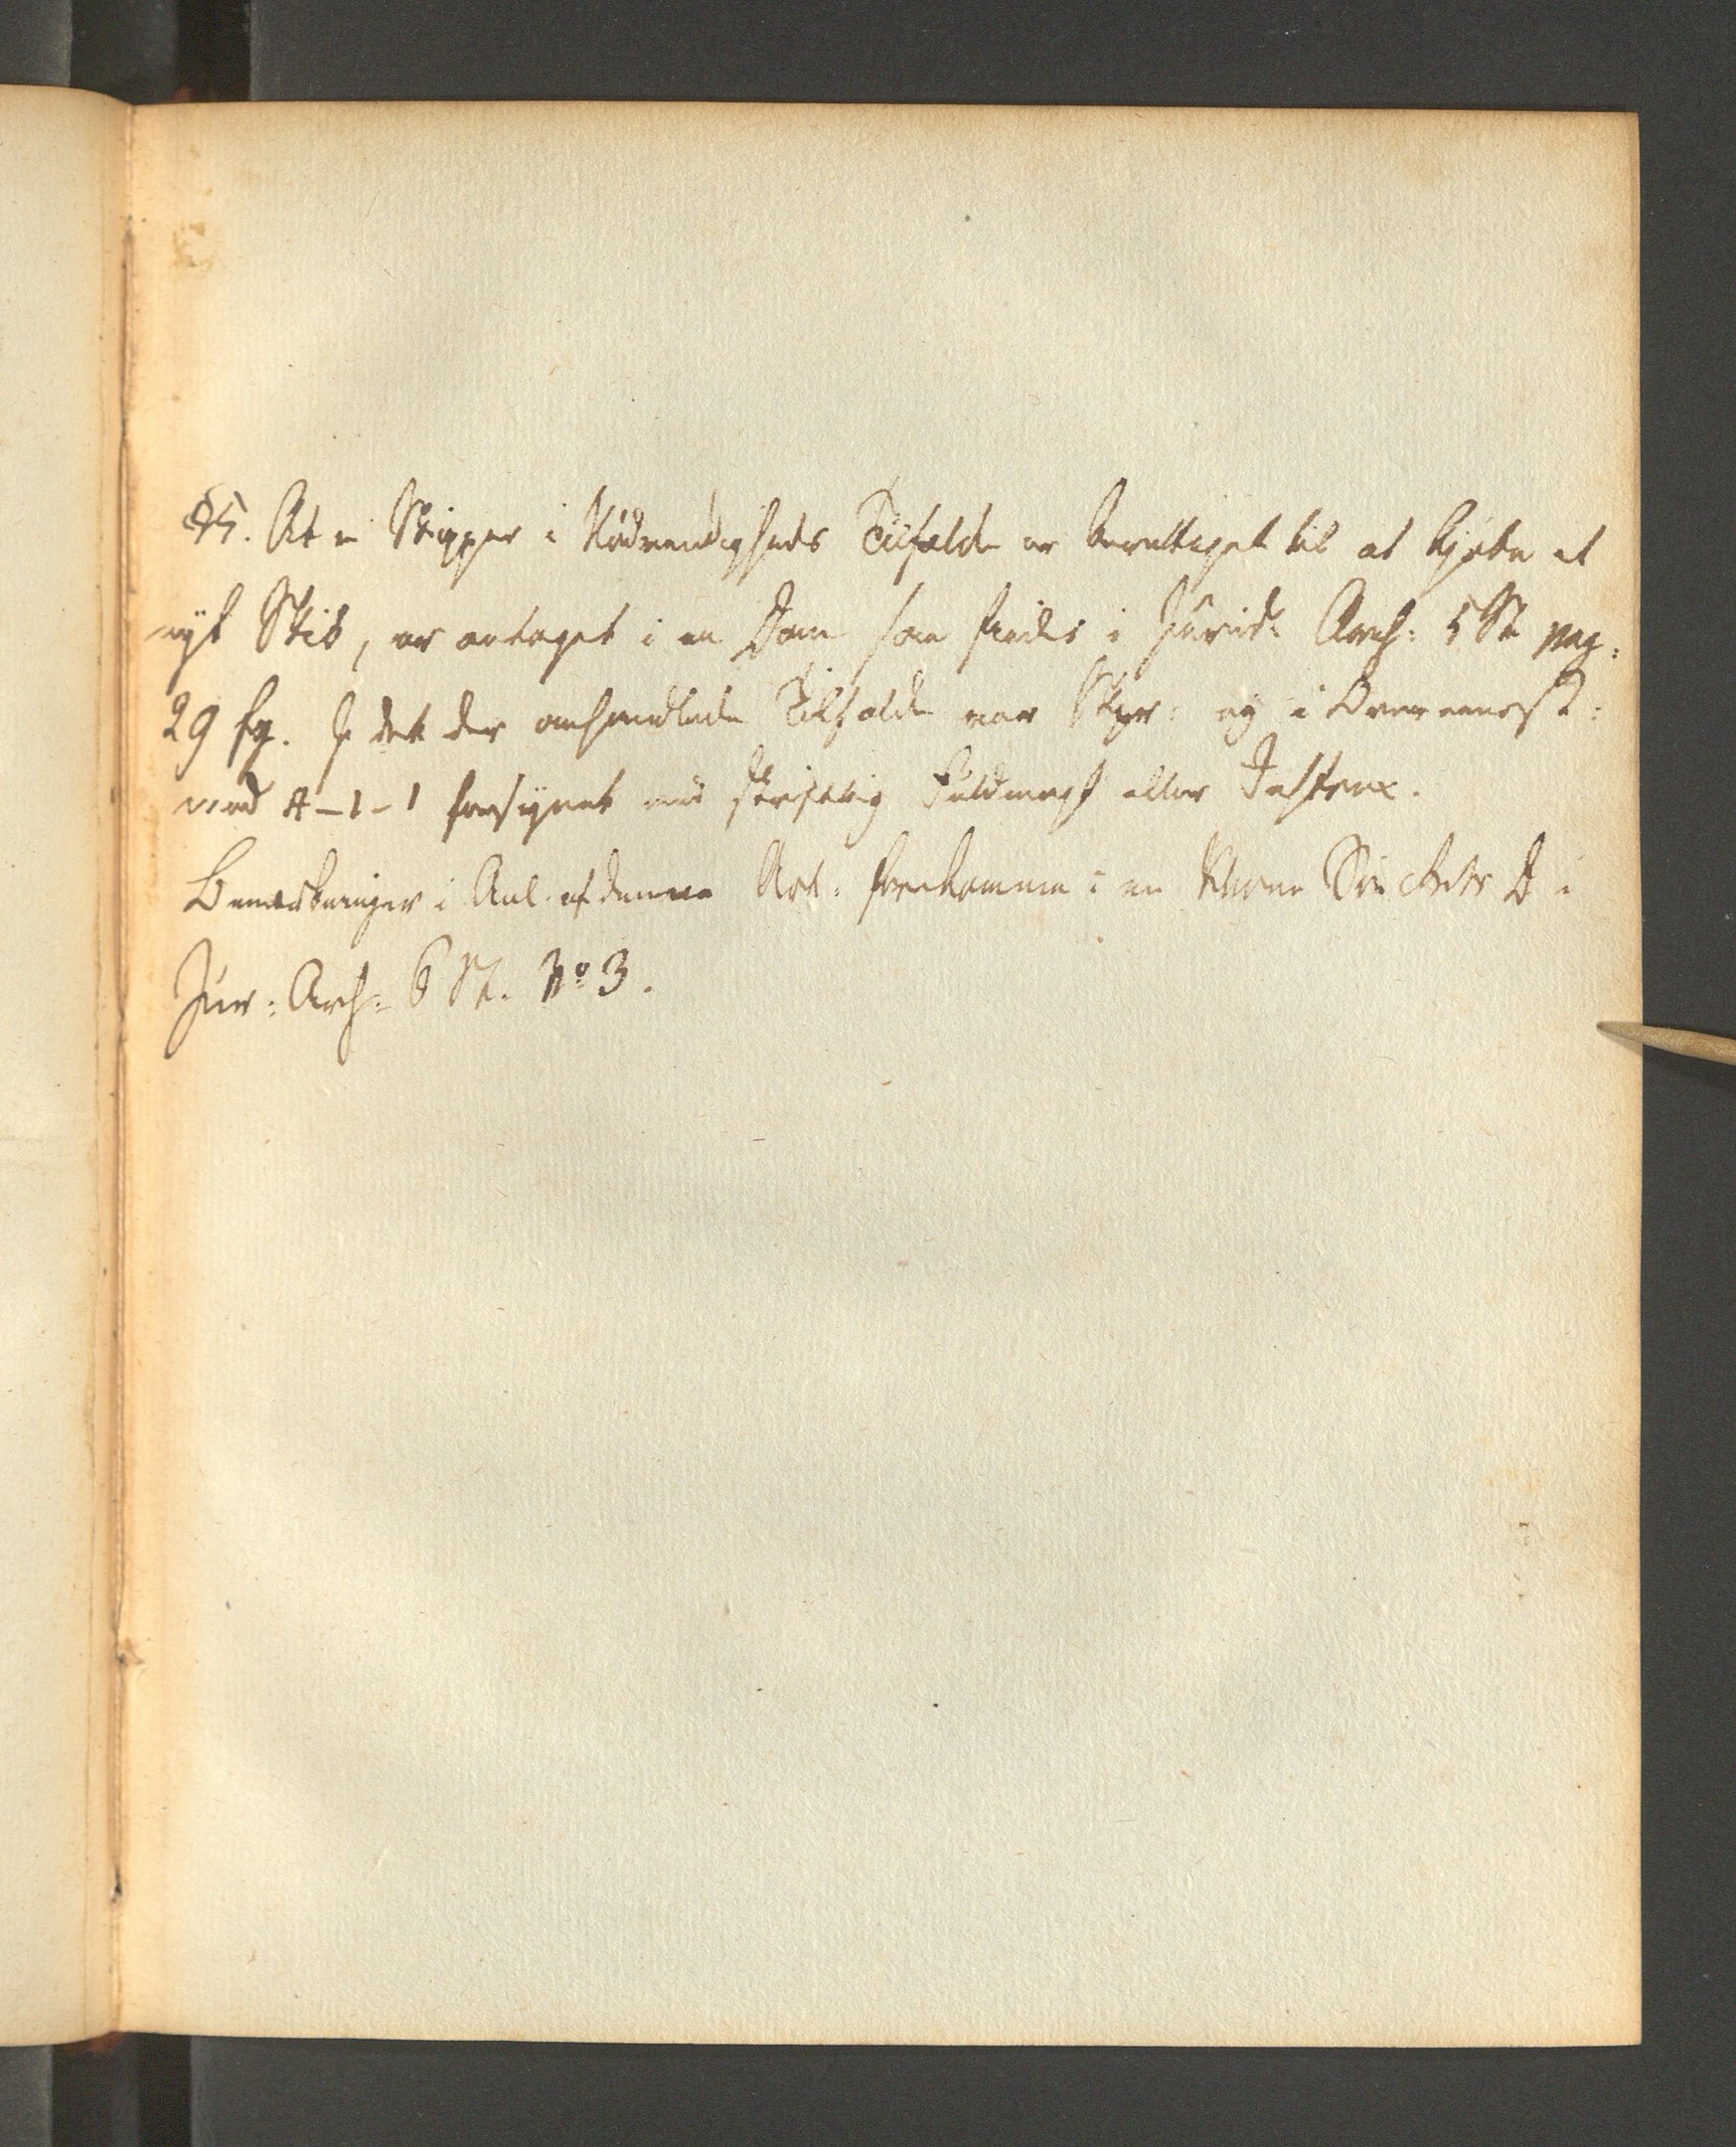 45. At en Skipper i Nødvendigheds Tilfælde er berettiget til at kjøbe et
nyt Skib, er antaget i en Dom som findes i Jurid: Arch: 5 St pag:
29 fg. I det der omhandlede Tilfælde var Skpr: ej i Overeensst:
med 4-1-1 forsynet med skriftlig Fuldmagt eller Instrux.
Bemærkninger i Anl. af denne Art: forekomme i en D i
Jur: Arch: 6 St. No 3.